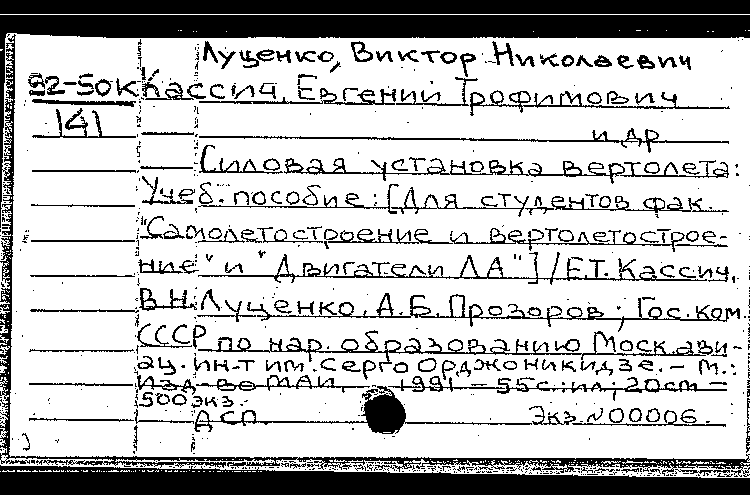 Луценко, Виктор Николаевич
92-50к Кассич, Евгений Трофимович
141
и др
Силовая установка вертолета:
Учеб. пособие: [Для студентов фак.
"Самолетостроение и вертолетострое-
ние" и "Двигатели ЛА"] / Е.Т. Кассич,
В.Н. Луценко, А.Б. Прозоров; Гос. ком.
СССР по нар. образованию Моск. ави-
ац. ин-т им. Серго Орджоникидзе. - М.:
Изд-во МАИ, 1991 - 55 с.: ил; 20 см -
500 экз.
ДСП. Экз N 00006.